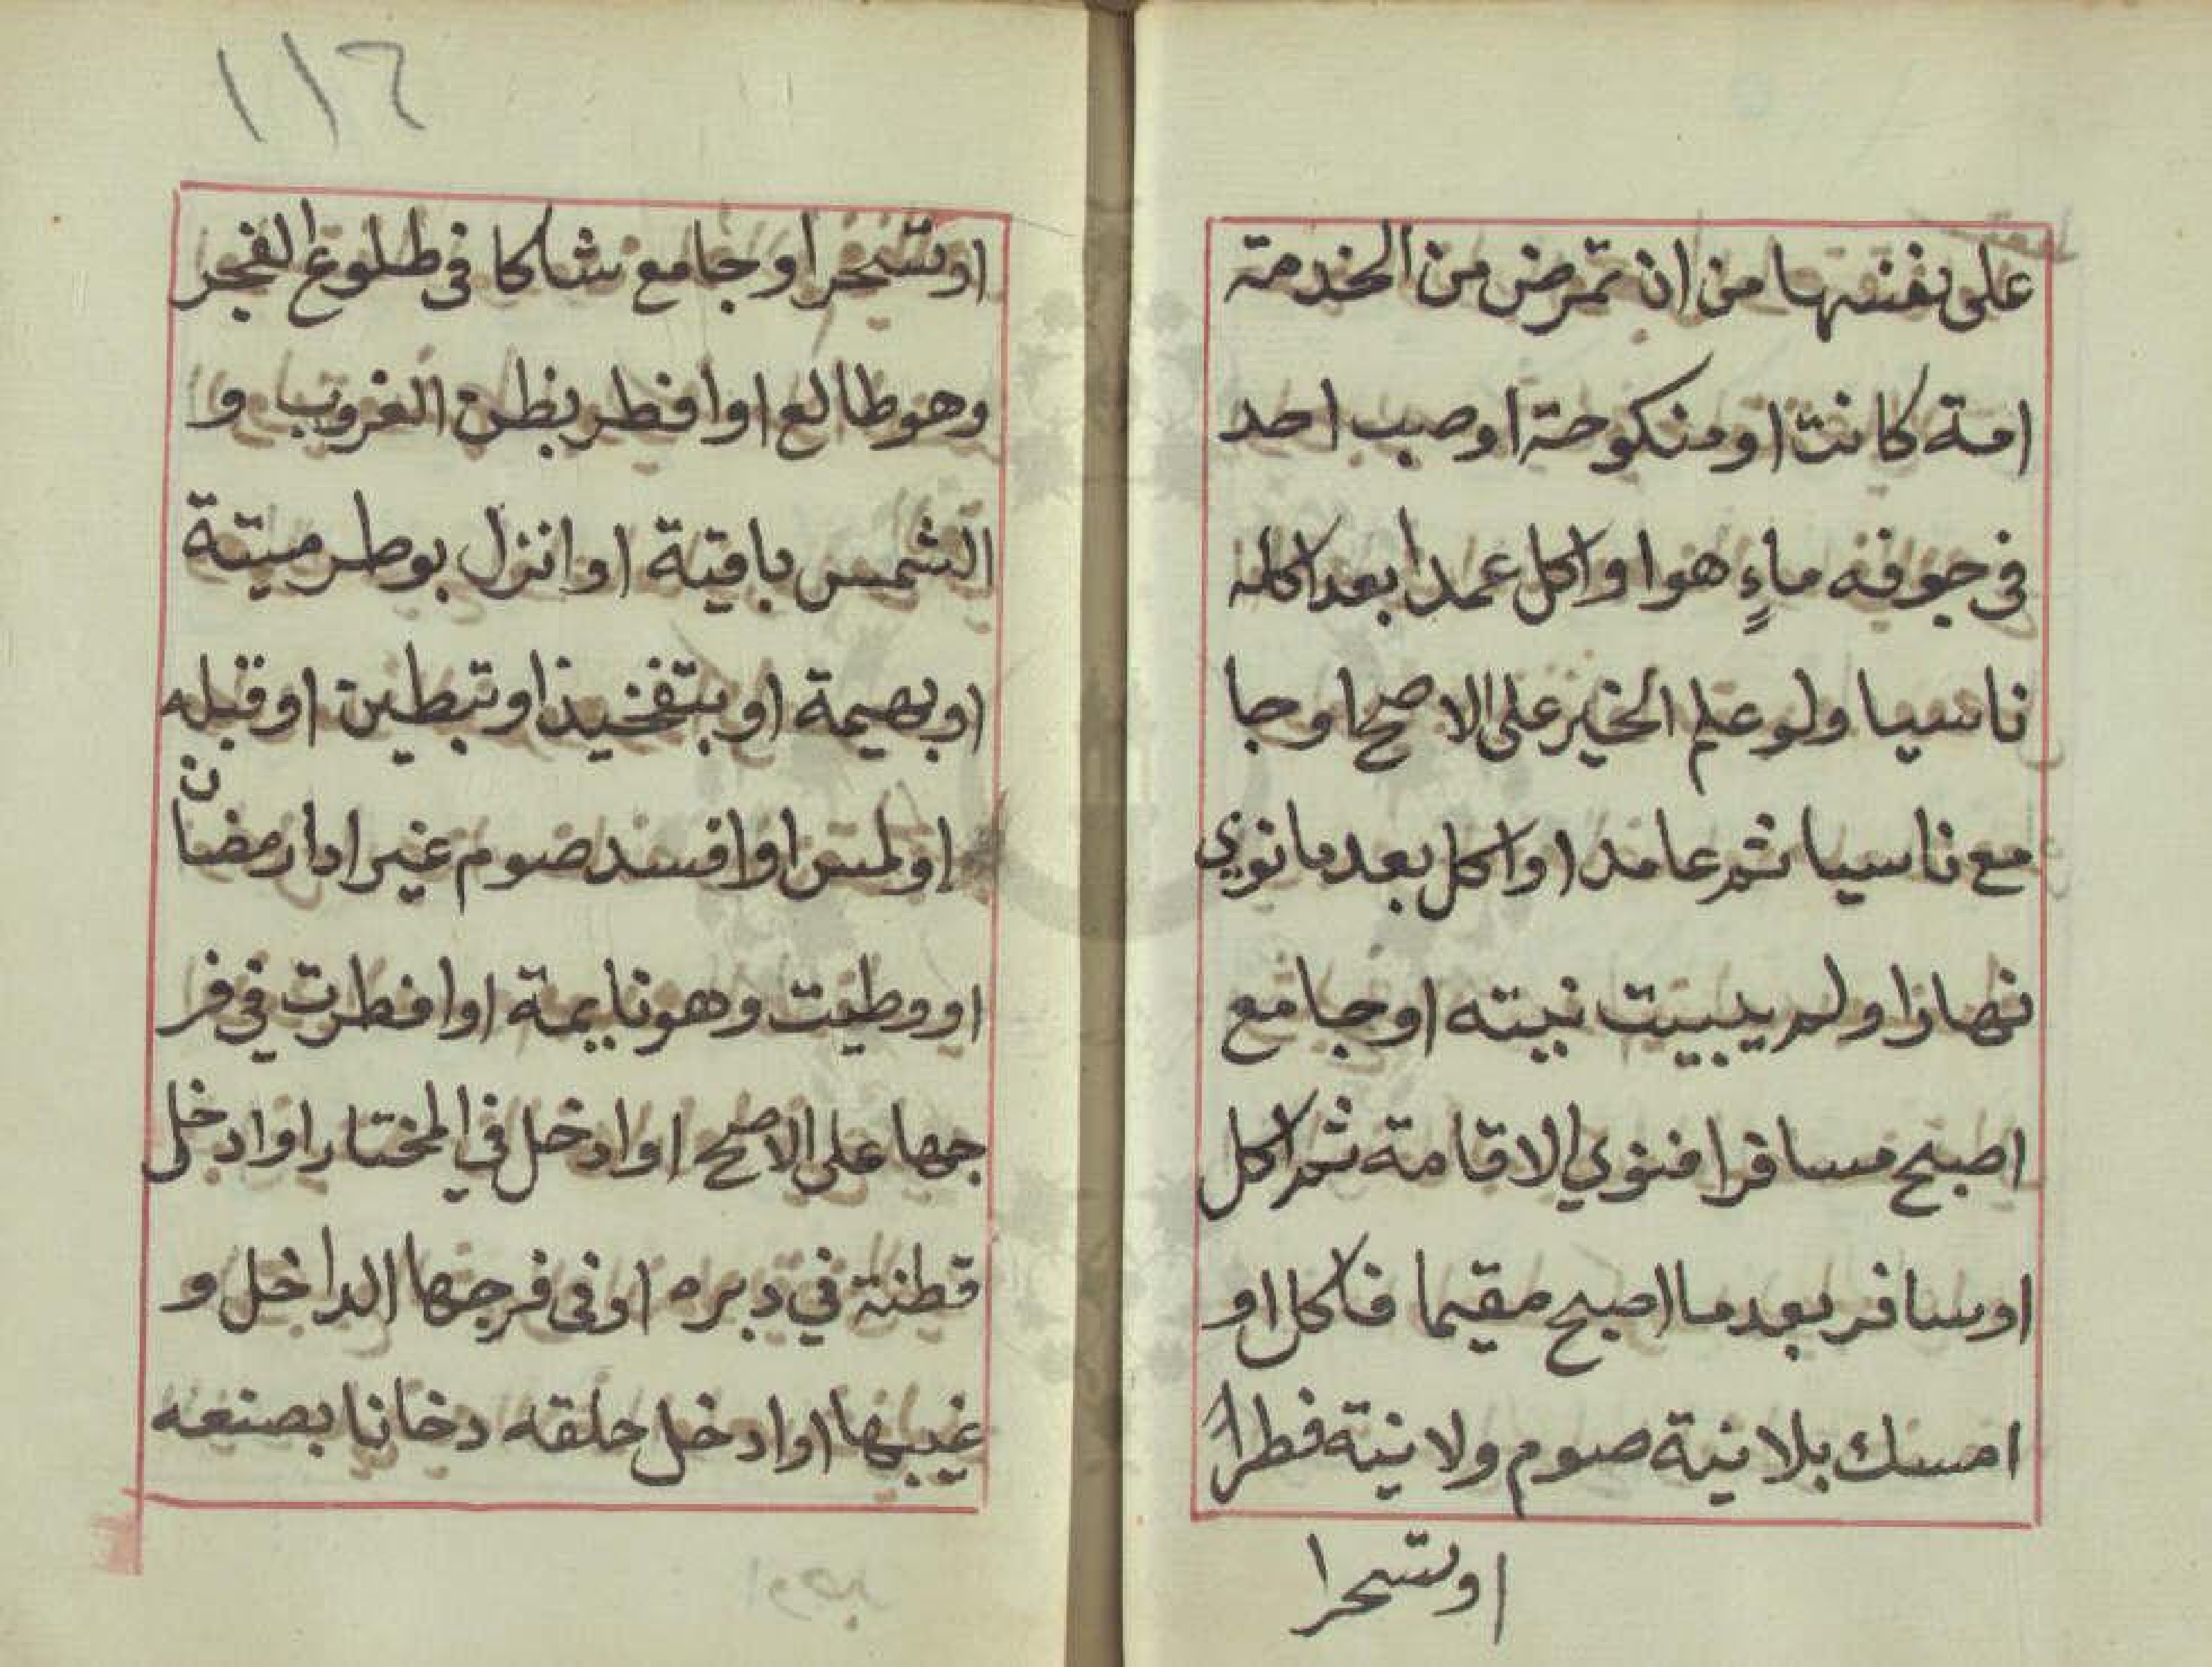 على نفسها من ان تمرض من الخدمة
امة كانت او منكوحة او صب احد
في جوفه ماءٍ هوا واكل عمدا بعد اكله
ناسيا ولو علم الخير على الاصح او جا
مع ناسيا ثم عامدا او اكل بعد ما نوي
نهارا ولم يبيت نيته او جامع
اصبح مسافرا فنوي الاقامة ثم اكل
او سافر بعد ما اصبح مقيما فاكل او
امسك بلا نية صوم ولا نية فطراً
او تسحرا
١١٦
او تسحر او جامع شاكا في طلوع الفجر
وهو طالع او افطر بظن الغروب و
الشمس باقية او انزل بوطر ميتة
او بهيمة او بتفخيذ او تبطين او قبله
او لمس او افسد صوم غير ادا رمضان
او وطيت وهو نايمة او افطرت في فر
جها على الاصح او ادخل في المختار او ادخل
قطنة في دبره او في فرجها الداخل و
غيبها او ادخل حلقه دخانا بصنعه